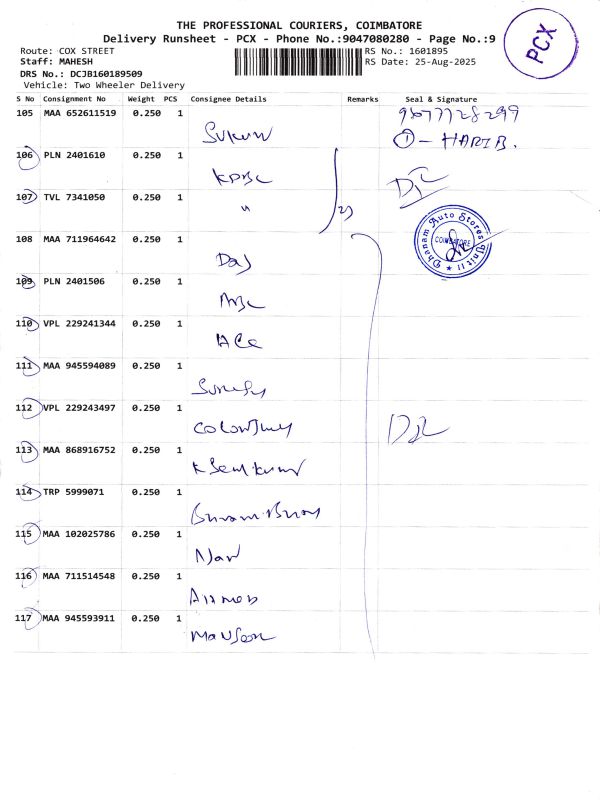 THE PROFESSIONAL COURIERS, COIMBATORE
Delivery Runsheet - PCX - Phone No.:9047080280 - Page No.:9
PCX
Route: COX STREET
RS No.: 1601895
Staff: MAHESH
RS Date: 25-Aug-2025
DRS No.: DCJB160189509
Vehicle: Two Wheeler Delivery
S No Consignment No Weight PCS Consignee Details Remarks Seal & Signature
105 MAA 652611519 0.250 1
9677728299
1 - HARI B.
106 PLN 2401610 0.250 1
KPBC
107 TVL 7341050 0.250 1
"
Dhanam Auto Stores Unit II
COIMBATORE
108 MAA 711964642 0.250 1
109 PLN 2401506 0.250 1
ABC
110 VPL 229241344 0.250 1
ACE
111 MAA 945594089 0.250 1
112 VPL 229243497 0.250 1
113 MAA 868916752 0.250 1
114 TRP 5999071 0.250 1
115 MAA 102025786 0.250 1
116 MAA 711514548 0.250 1
117 MAA 945593911 0.250 1